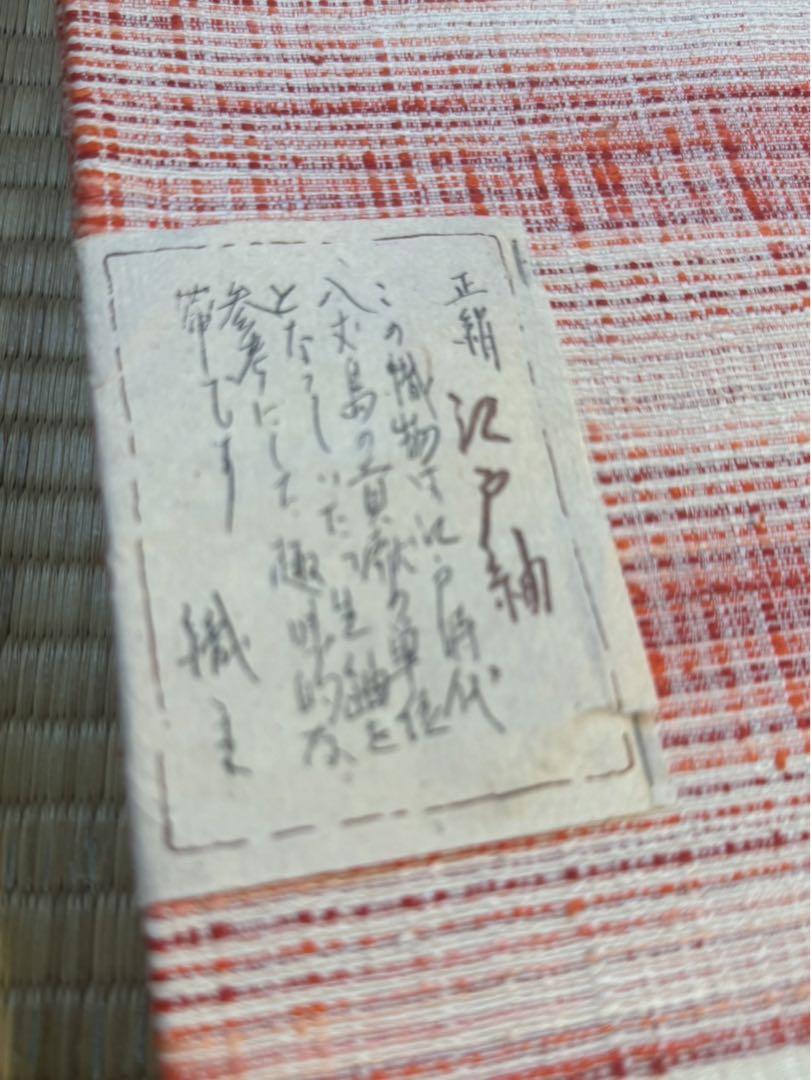 正絹 江戸紬
この織物は江戸時代
八丈島の貢献の単位
となっていた生紬を
参考にした趣味的な
帯です 織主